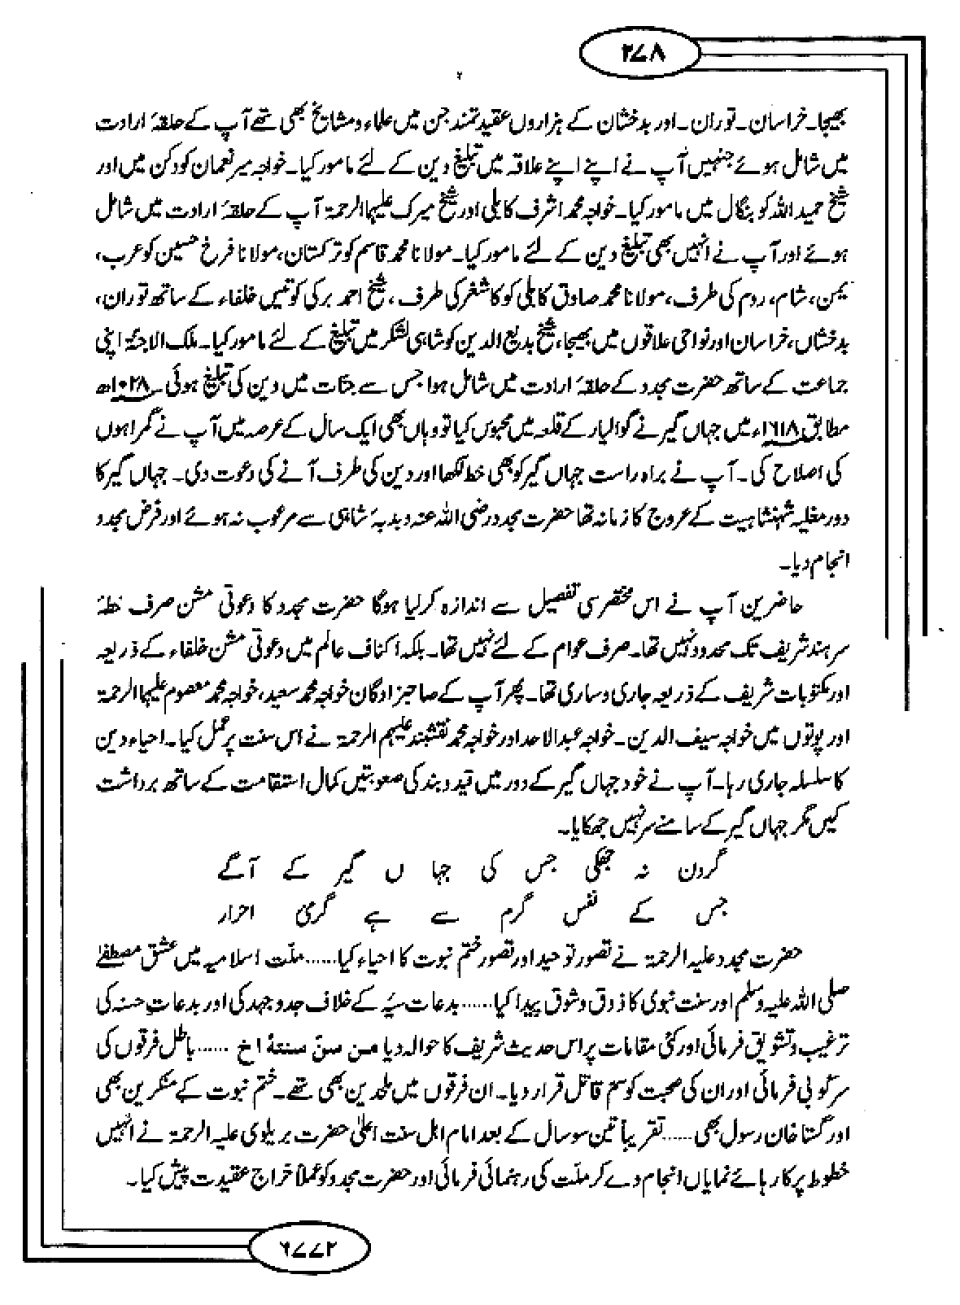 ۲۷۸
بھیجا۔ خراسان۔ توران۔ اور بدخشان کے ہزاروں عقیدتمند جن میں علماء و مشایخ بھی تھے آپ کے حلقۂ ارادت
میں شامل ہوئے جنہیں آپ نے اپنے اپنے علاقہ میں تبلیغ دین کے لئے مامور کیا۔ خواجہ میر نعمان کو دکن میں اور
شیخ حمید اللہ کو بنگال میں مامور کیا۔ خواجہ محمد اشرف کابلی اور شیخ میرک علیہما الرحمۃ آپ کے حلقۂ ارادت میں شامل
ہوئے اور آپ نے انہیں بھی تبلیغ دین کے لئے مامور کیا۔ مولانا محمد قاسم کو ترکستان، مولانا فرخ حسین کو عرب،
یمن، شام، روم کی طرف، مولانا محمد صادق کابلی کو کاشغر کی طرف، شیخ احمد برکی کو تیس خلفاء کے ساتھ توران،
بدخشاں، خراسان اور نواحی علاقوں میں بھیجا، شیخ بدیع الدین کو شاہی لشکر میں تبلیغ کے لئے مامور کیا۔ ملک الاجنّۃ اپنی
جماعت کے ساتھ حضرت مجدد کے حلقۂ ارادت میں شامل ہوا جس سے جنّات میں دین کی تبلیغ ہوئی۔ ۱۰۲۸ھ
مطابق ۱۶۱۸ء میں جہاں گیر نے گوالیار کے قلعہ میں محبوس کیا تو وہاں بھی ایک سال کے عرصہ میں آپ نے گمراہوں
کی اصلاح کی۔ آپ نے براہ راست جہاں گیر کو بھی خط لکھا اور دین کی طرف آنے کی دعوت دی۔ جہاں گیر کا
دور مغلیہ شہنشاہیت کے عروج کا زمانہ تھا حضرت مجدد رضی اللہ عنہ دبدبۂ شاہی سے مرعوب نہ ہوئے اور فرض مجدد
انجام دیا۔
حاضرین آپ نے اس مختصر سی تفصیل سے اندازہ کرلیا ہوگا حضرت مجدد کا دعوتی مشن صرف خطۂ
سرہند شریف تک محدود نہیں تھا۔ صرف عوام کے لئے نہیں تھا۔ بلکہ اکناف عالم میں دعوتی مشن خلفاء کے ذریعہ
اور مکتوبات شریف کے ذریعہ جاری و ساری تھا۔ پھر آپ کے صاحبزادگان خواجہ محمد سعید، خواجہ محمد معصوم علیہما الرحمۃ
اور پوتوں میں خواجہ سیف الدین۔ خواجہ عبدالاحد اور خواجہ محمد نقشبند علیہم الرحمۃ نے اس سنت پر عمل کیا۔ احیاء دین
کا سلسلہ جاری رہا۔ آپ نے خود جہاں گیر کے دور میں قید و بند کی صعوبتیں کمال استقامت کے ساتھ برداشت
کیں مگر جہاں گیر کے سامنے سر نہیں جھکایا۔
گردن نہ جھکی جس کی جہاں گیر کے آگے
جس کے نفس گرم سے ہے گرمیٔ احرار
حضرت مجدد علیہ الرحمۃ نے تصور توحید اور تصور ختم نبوت کا احیاء کیا...... ملّت اسلامیہ میں عشق مصطفےٰ
صلی اللہ علیہ وسلم اور سنت نبوی کا ذوق و شوق پیدا کیا...... بدعات سیّۂ کے خلاف جدوجہد کی اور بدعاتِ حسنہ کی
ترغیب و تشویق فرمائی اور کئی مقامات پر اس حدیث شریف کا حوالہ دیا من سنّ سنتۃ اخ ...... باطل فرقوں کی
سرکوبی فرمائی اور ان کی صحبت کو سم قاتل قرار دیا۔ ان فرقوں میں ملحدین بھی تھے۔ ختم نبوت کے منکرین بھی
اور گستاخان رسول بھی...... تقریباً تین سو سال کے بعد امام اہل سنت اعلیٰ حضرت بریلوی علیہ الرحمۃ نے انہیں
خطوط پر کارہائے نمایاں انجام دے کر ملّت کی رہنمائی فرمائی اور حضرت مجدد کو عملاً خراج عقیدت پیش کیا۔
۶۷۷۲